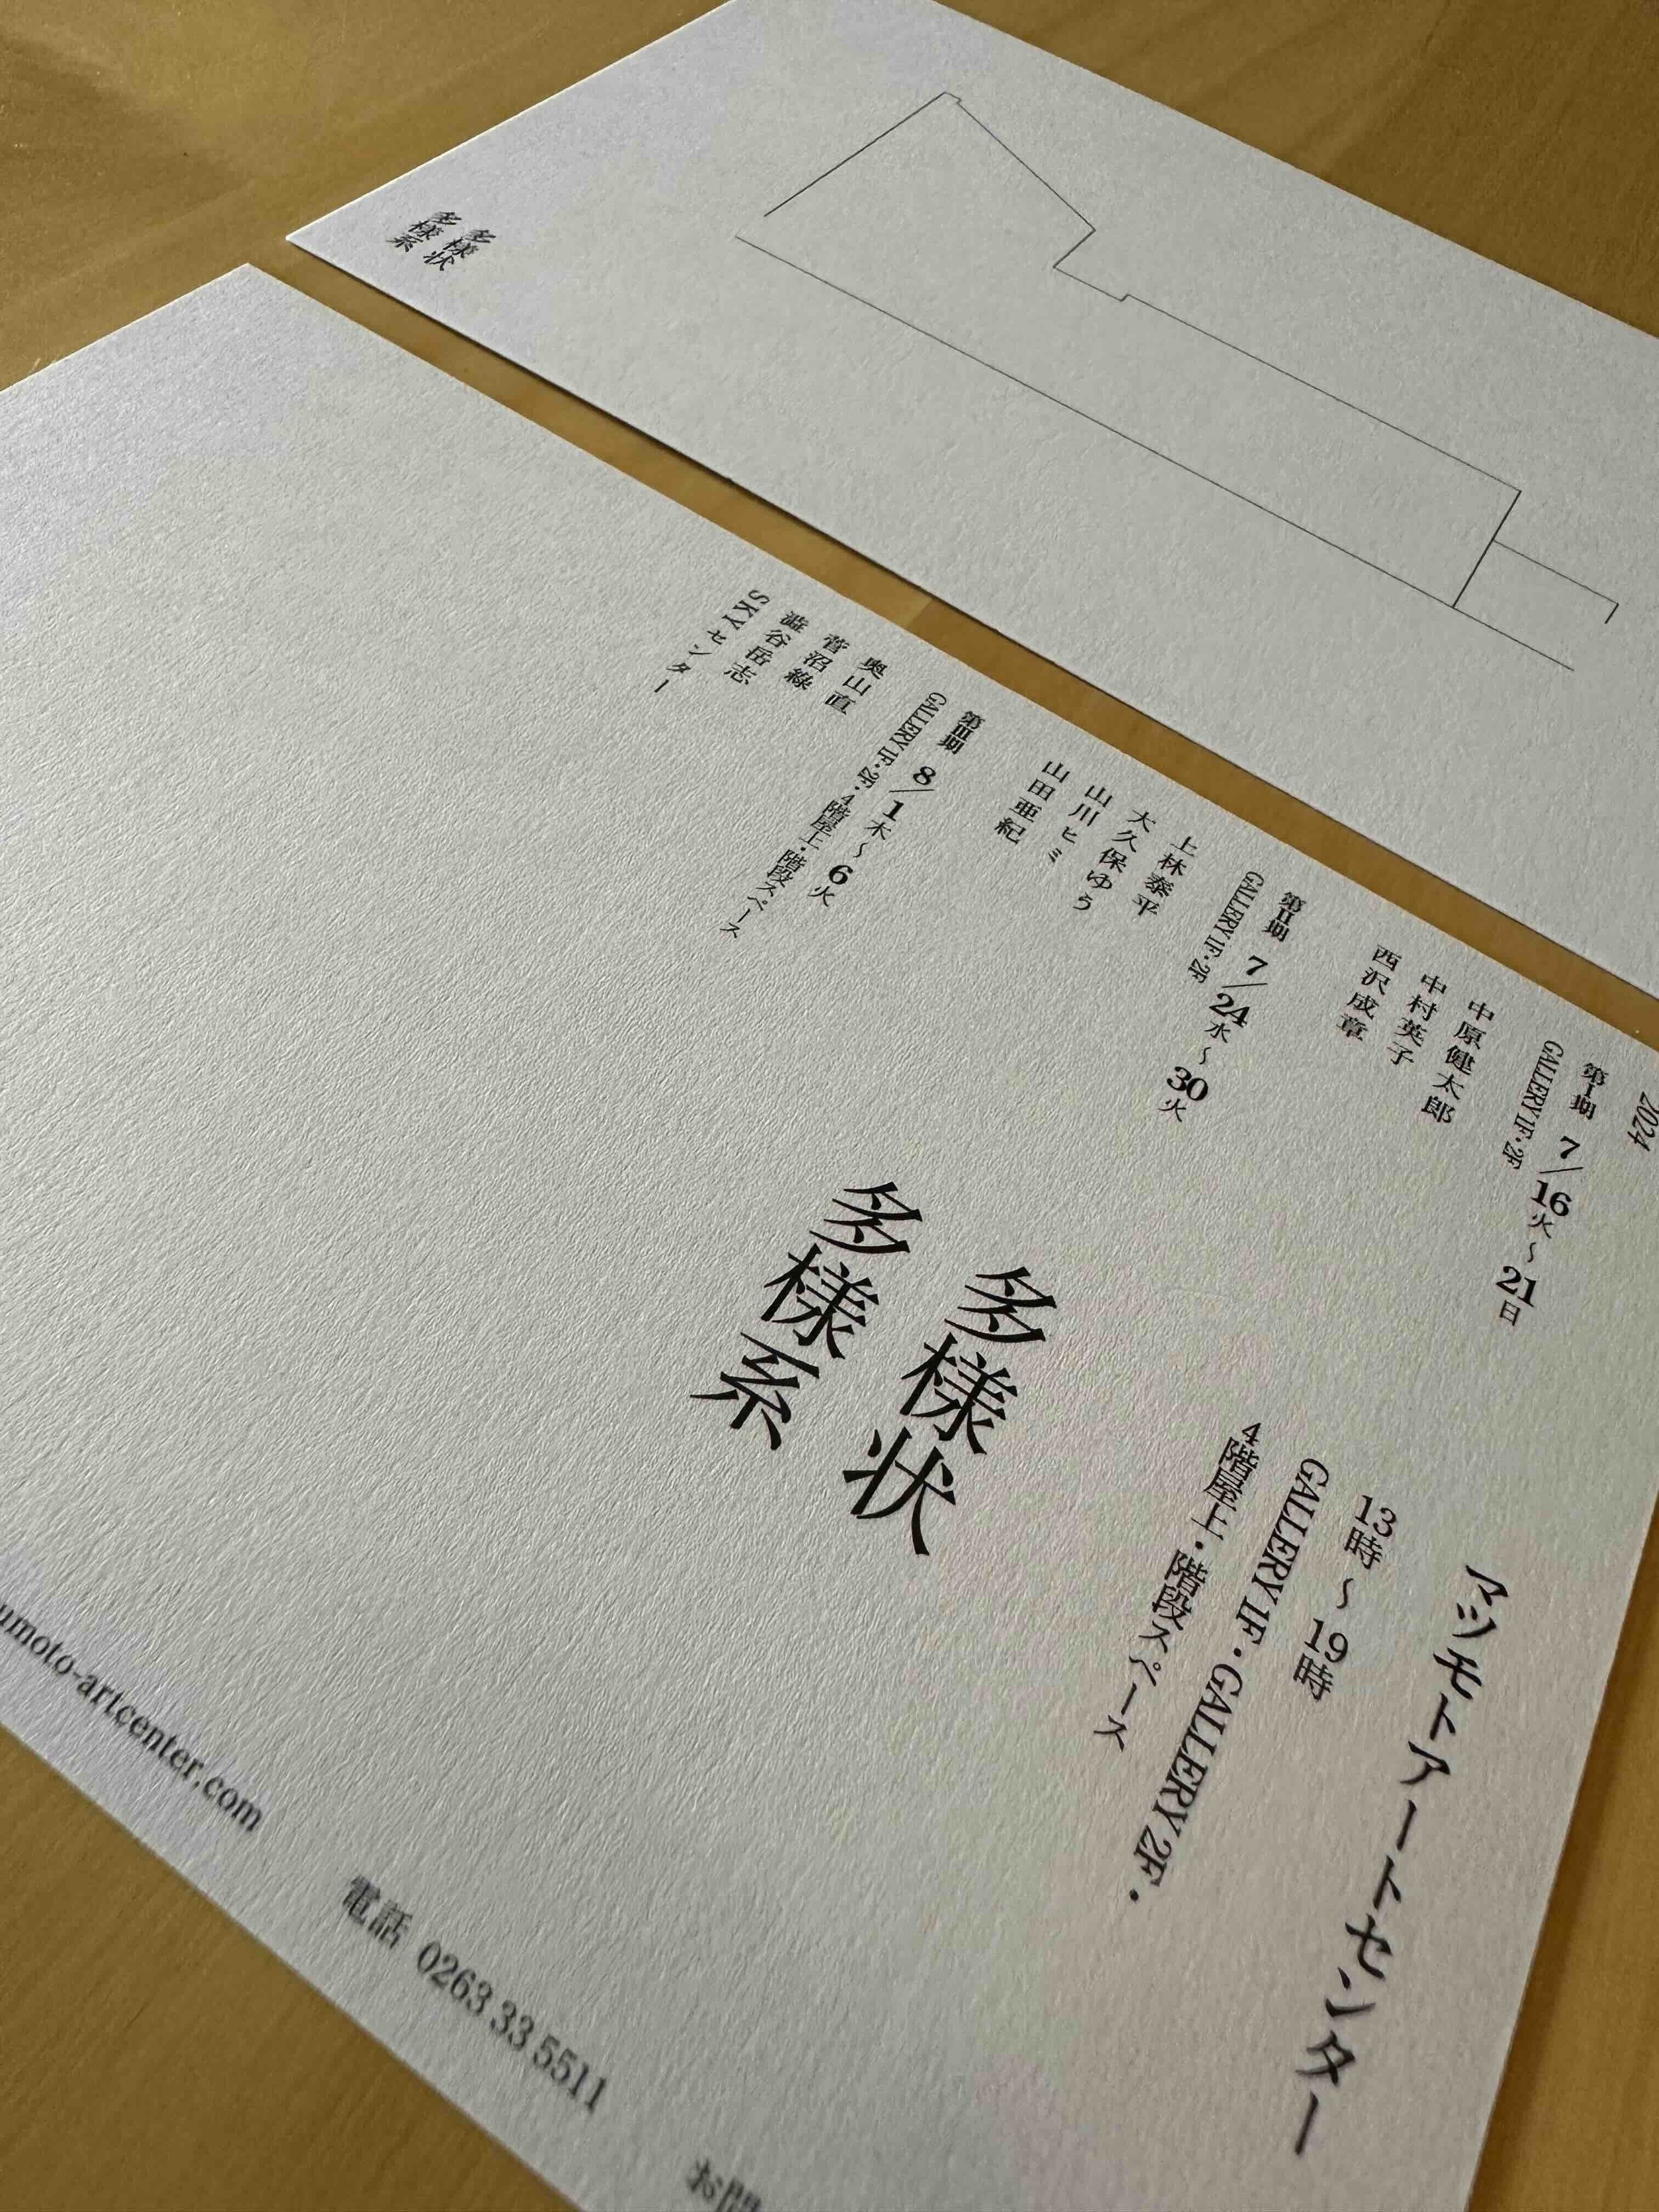 多様状
多様系
2024
第Ⅰ期 7/16火〜21日
GALLERY 1F・2F
中原健太郎
中村英子
西沢成章
第Ⅱ期 7/24水〜30火
GALLERY 1F・2F
上林泰平
大久保ゆう
山川ヒミ
山田亜紀
第Ⅲ期 8/1木〜6火
GALLERY 1F・2F・4階屋上・階段スペース
奥山直
菅沼緑
澁谷岳志
SKYセンター
マツモトアートセンター
13時〜19時
GALLERY 1F・GALLERY 2F・
4階屋上・階段スペース
多様状
多様系
umoto-artcenter.com
電話 0263 33 5511